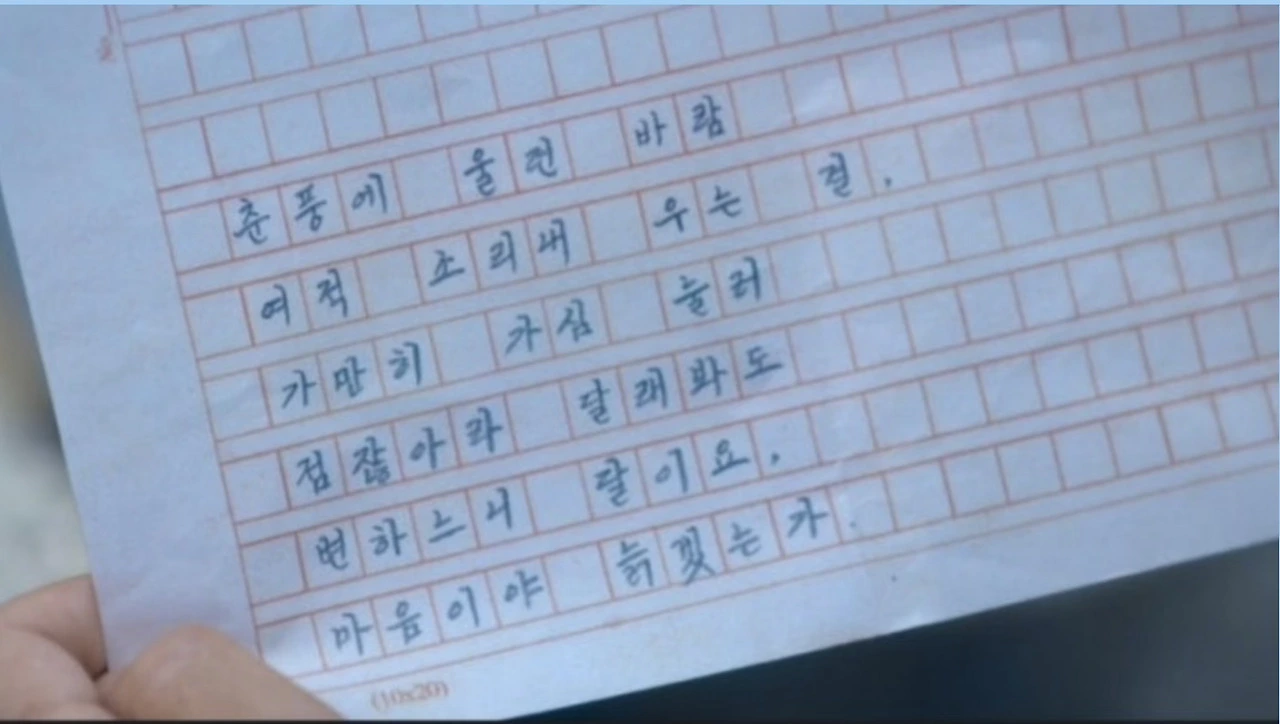 춘풍에 울던 바람
여적 소리내 우는 걸,
가만히 가심 눌러
점잖아라 달래봐도
변하느니 달이요,
마음이야 늙겠는가.
(10x20)